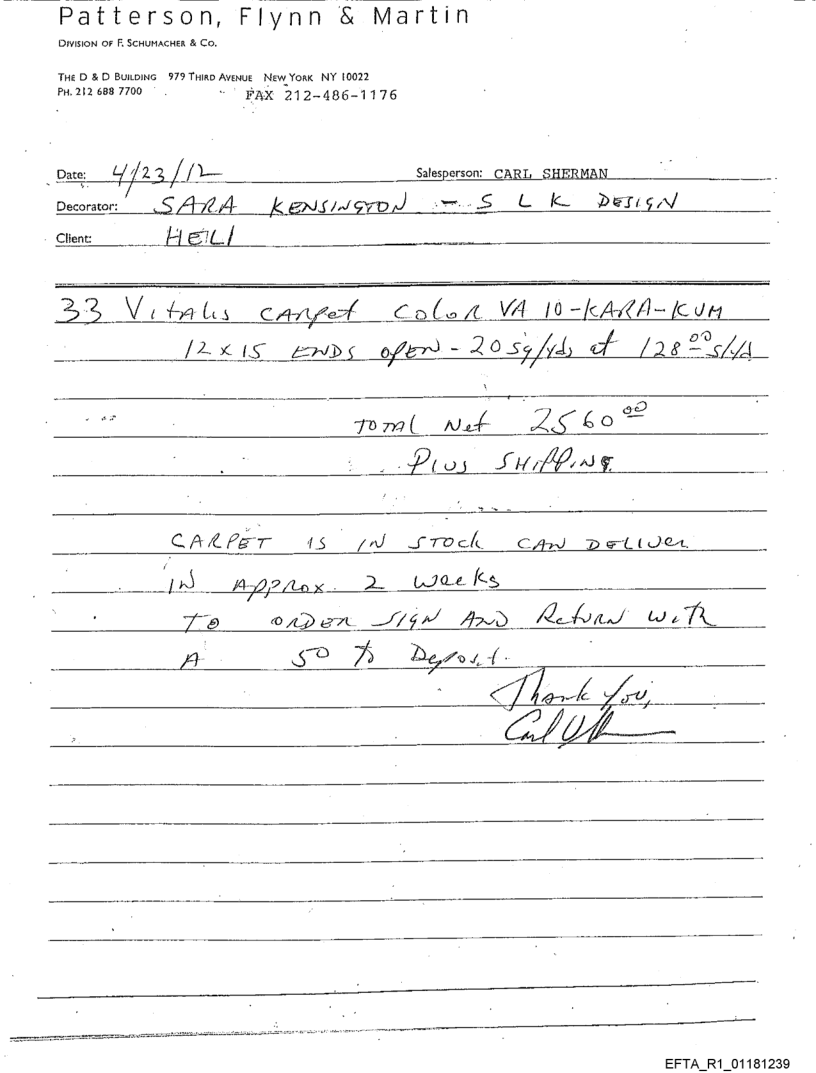 Patterson, Flynn & Martin
DIVISION OF F. SCHUMACHER & CO.
THE D & D BUILDING 979 THIRD AVENUE NEW YORK NY 10022
PH. 212 688 7700 FAX 212-486-1176
Date: 4/23/12 Salesperson: CARL SHERMAN
Decorator: SARA KENSINGTON - S L K DESIGN
Client: HEILI
33 Vitalis CARPet Color VA 10-KARA-KUM
12 x 15 ENDS OPEN - 20 Sq/Yds at 128.00 S/Yd
TOTAl Net 2560.00
Plus SHIPPING
CARPET IS IN STOCK CAN DELIVER
IN APPROX. 2 Weeks
TO ORDER SIGN AND Return WITH
A 50 % Deposit.
Thank You,
Carl
EFTA_R1_01181239